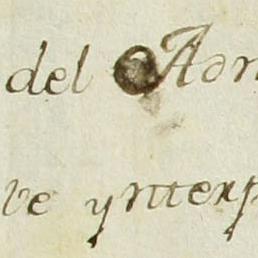 del Adm
ve ynterp